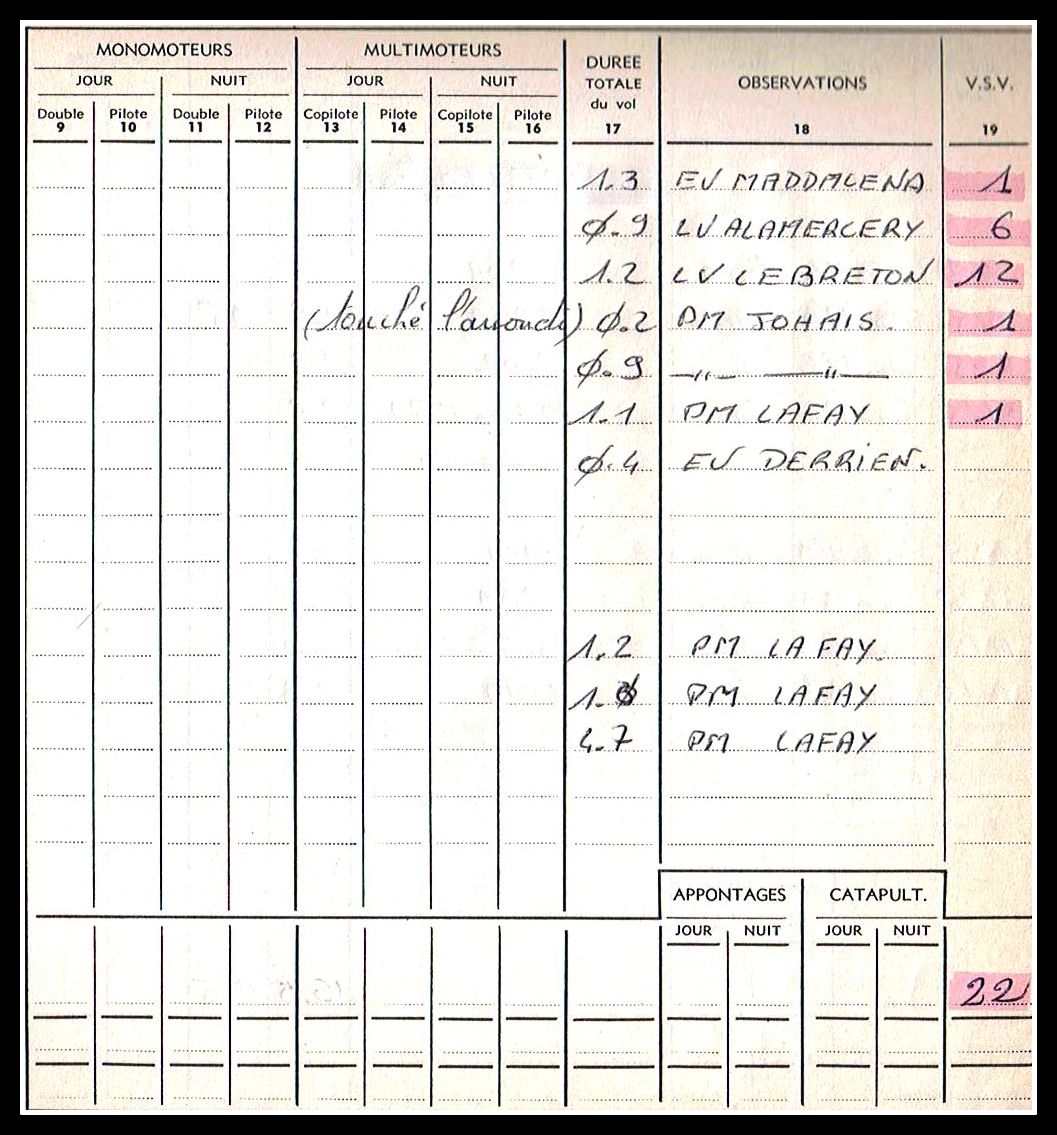 MONOMOTEURS MULTIMOTEURS DUREE TOTALE du vol OBSERVATIONS V.S.V.
JOUR NUIT JOUR NUIT
Double Pilote Double Pilote Copilote Pilote Copilote Pilote
9 10 11 12 13 14 15 16 17 18 19
1.3 EV MADDALENA 1
Ø.9 LV ALAMERCERY 6
1.2 LV LEBRETON 12
(touché l'arrondi) Ø.2 PM JOHAIS. 1
Ø.9 —"— —"— 1
1.1 PM LAFAY 1
Ø.4 EV DERRIEN.
1.2 PM LAFAY.
1.Ø PM LAFAY
4.7 PM LAFAY
APPONTAGES CATAPULT.
JOUR NUIT JOUR NUIT
22